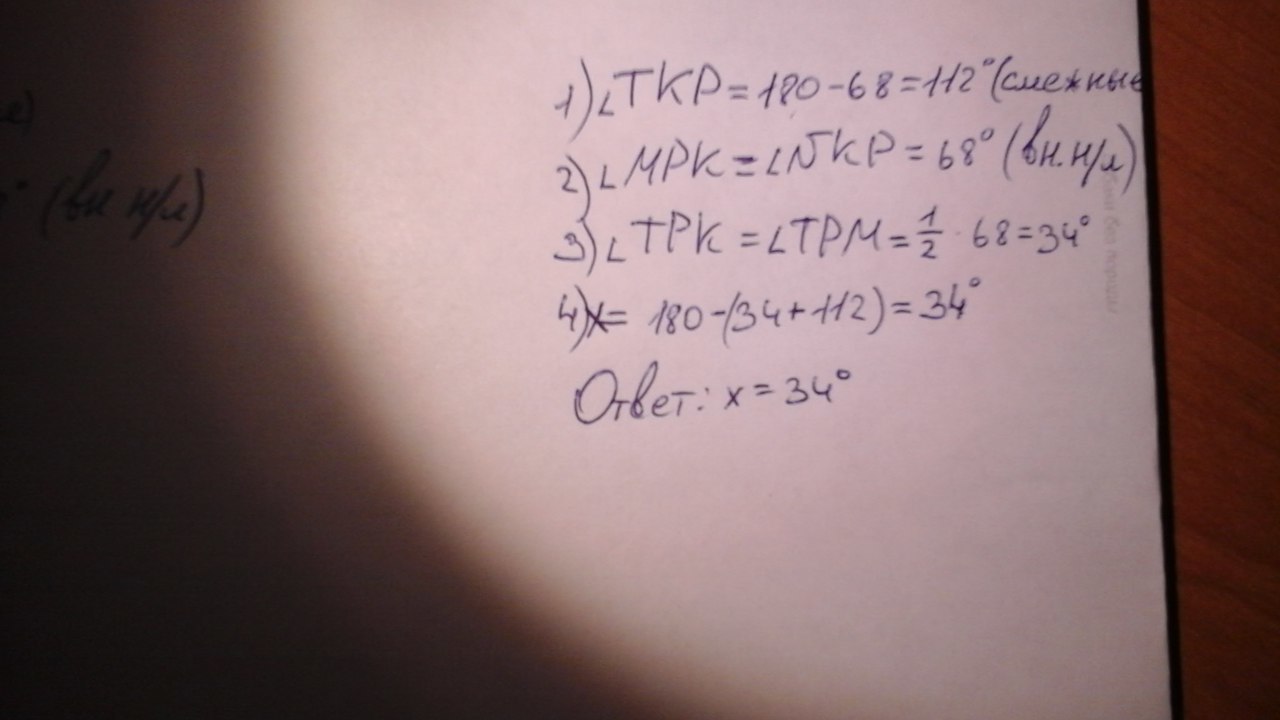 1) ∠TKP = 180 - 68 = 112° (смежные
2) ∠MPK = ∠NKP = 68° (вн. н/л)
3) ∠TPK = ∠TPM = 1/2 · 68 = 34°
4) x = 180 - (34 + 112) = 34°
Ответ: x = 34°
° (вн н/л)